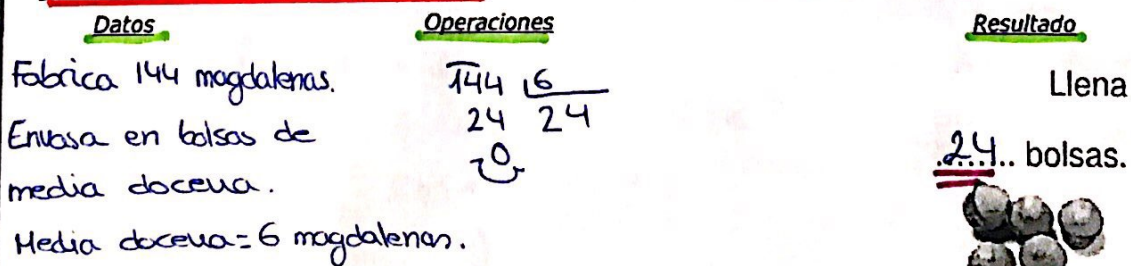 Datos
Fabrica 144 magdalenas.
Envasa en bolsas de
media docena.
Media docena = 6 magdalenas.
Operaciones
144 6
24 24
0
Resultado
Llena
24 bolsas.